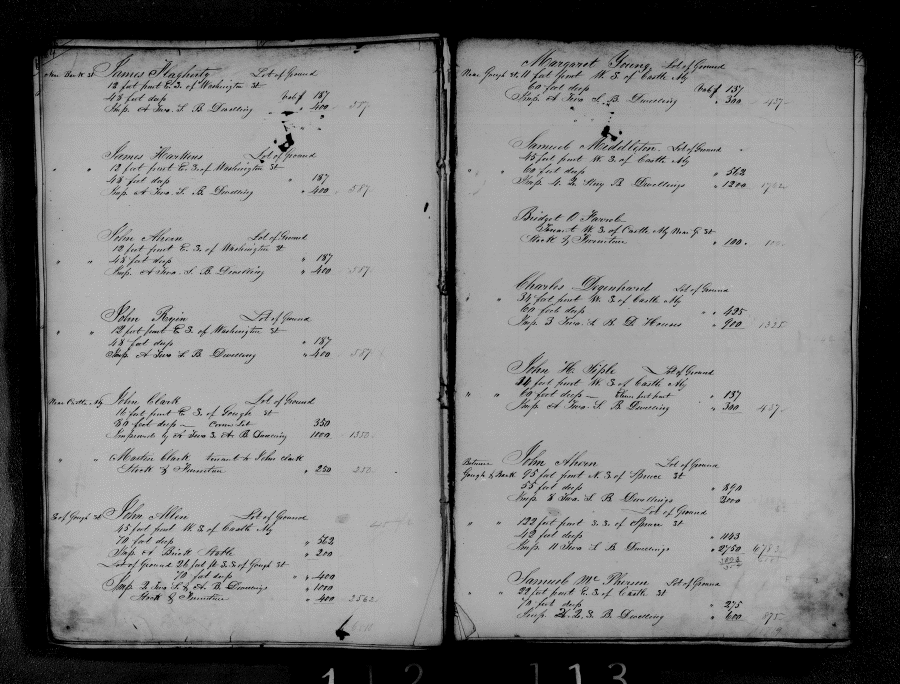 James Flaherty Lot of Ground
Near Bank St 12 feet front E. S. of Washington St
48 feet deep Val of 187
Imp. A Two S. B. Dwelling " 400 587
James Harkens Lot of Ground
" " 12 feet front E. S. of Washington St
48 feet deep " 187
Imp. A Two S. B. Dwelling " 400 587
John Ahern Lot of Ground
12 feet front E. S. of Washington St
" " 48 feet deep " 187
Imp. A Two S. B. Dwelling " 400 587
John Ryin Lot of Ground
" " 12 feet front E. S. of Washington St
48 feet deep " 187
Imp A Two S. B. Dwelling " 400 587
Near Castle Aly John Clark Lot of Ground
16 feet front E. S. of Gough St
50 feet deep — Corner Lot 350
Improvements by A Two S. A. B. Dwelling 1000 1350
" " Martin Clark tenant to John Clark
Stock & Furniture " 250 250
S. of Gough St John Allen Lot of Ground
45 feet front W. S. of Castle Aly
70 feet deep " 562
Imp A Brick Stable " 200
Lot of Ground 26 feet ft S. S of Gough St
70 feet deep " 400
Imp 2 Two S. & A. B. Dwellings " 1000
Stock & Furniture " 400 2562
Margaret Young Lot of Ground
Near Gough St 11 feet front W. S. of Castle Aly
60 feet deep Val of 137
Imp A Two S. B. Dwelling " 300 437
Samuel Middleton Lot of Ground
45 feet front W. S. of Castle Aly
" " 60 feet deep " 562
Imp. 4. 2. Stry B Dwellings " 1200 1762
Bridget
Tenant W. S. of Castle Aly Near G. St
Stock & Furniture " 100 100
Charles Degenhard Lot of Ground
" " 34 feet front W. S. of Castle Aly
60 feet deep " 425
Imp. 3 Two S. B. D. Houses " 900 1325
John H. Kiple Lot of Ground
feet front W. S. of Castle Aly
" " 60 feet deep — " 137
Imp. A Two S. B. Dwelling " 300 437
Between John Ahern Lot of Ground
Gough & Bank 95 feet front N. S. of Spruce St
55 feet deep " 890
Imp 8 Two S. B Dwellings 2000
Lot of Ground
" " 122 feet front S. S. of Spruce St
42 feet deep " 1143
Imp. 11 Two S. B Dwellings " 2750 6783
Samuel Mc Pherson Lot of Ground
" " 22 feet front E. S. of Castle St
70 feet deep " 275
Imp. 2. S. B. Dwelling " 600 875
112 113